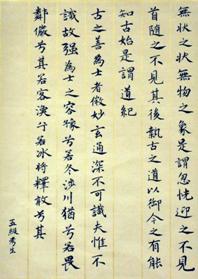 無狀之狀無物之象是謂忽恍迎之不見
首隨之不見其後執古之道以御今之有能
知古始是謂道紀
古之善為士者微妙玄通深不可識夫惟不
識故强為士之容豫兮若冬涉川猶兮若畏
鄰儼兮其若客渙兮若冰將釋敦兮其
五級考生